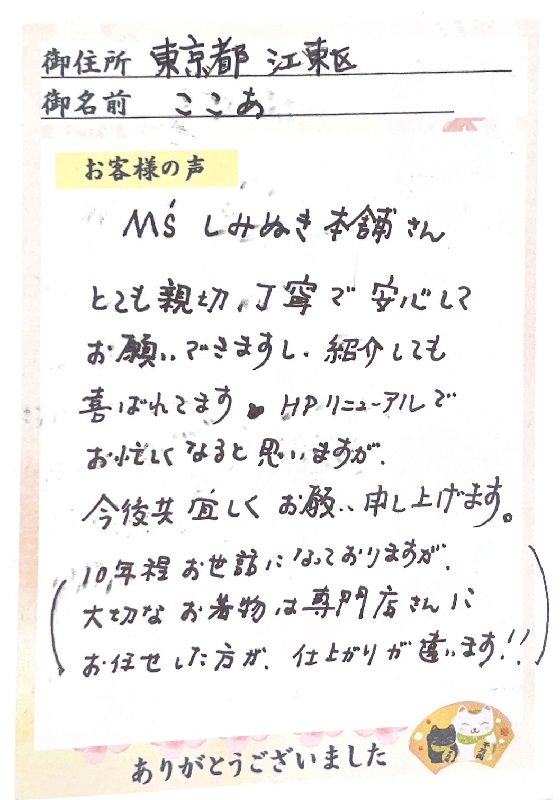 御住所 東京都 江東区
御名前 ここあ
お客様の声
M's しみぬき本舗さん
とても親切、丁寧で安心して
お願いできますし、紹介しても
喜ばれてます。HPリニューアルで
お忙しくなると思いますが、
今後共宜しくお願い申し上げます。
(10年程お世話になっておりますが、
大切なお着物は専門店さんに
お任せした方が、仕上がりが違います!!)
ありがとうございました